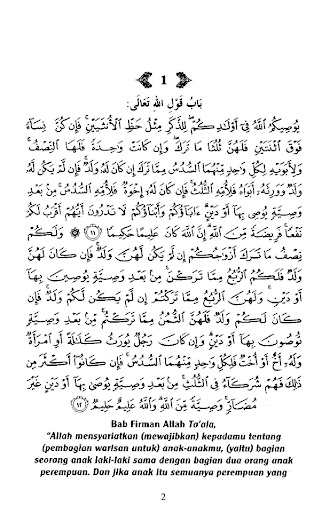 1
بَابُ قَوْلِ اللهِ تَعَالَى:
يُوصِيكُمُ ٱللَّهُ فِىٓ أَوْلَـٰدِكُمْ ۖ لِلذَّكَرِ مِثْلُ حَظِّ ٱلْأُنثَيَيْنِ ۚ فَإِن كُنَّ نِسَآءً
فَوْقَ ٱثْنَتَيْنِ فَلَهُنَّ ثُلُثَا مَا تَرَكَ ۖ وَإِن كَانَتْ وَٰحِدَةً فَلَهَا ٱلنِّصْفُ ۚ
وَلِأَبَوَيْهِ لِكُلِّ وَٰحِدٍ مِّنْهُمَا ٱلسُّدُسُ مِمَّا تَرَكَ إِن كَانَ لَهُۥ وَلَدٌ ۚ فَإِن لَّمْ يَكُن لَّهُۥ
وَلَدٌ وَوَرِثَهُۥٓ أَبَوَاهُ فَلِأُمِّهِ ٱلثُّلُثُ ۚ فَإِن كَانَ لَهُۥٓ إِخْوَةٌ فَلِأُمِّهِ ٱلسُّدُسُ ۚ مِنۢ بَعْدِ
وَصِيَّةٍ يُوصِى بِهَآ أَوْ دَيْنٍ ۗ ءَابَآؤُكُمْ وَأَبْنَآؤُكُمْ لَا تَدْرُونَ أَيُّهُمْ أَقْرَبُ لَكُمْ
نَفْعًا ۚ فَرِيضَةً مِّنَ ٱللَّهِ ۗ إِنَّ ٱللَّهَ كَانَ عَلِيمًا حَكِيمًا ١١ ۞ وَلَكُمْ
نِصْفُ مَا تَرَكَ أَزْوَٰجُكُمْ إِن لَّمْ يَكُن لَّهُنَّ وَلَدٌ ۚ فَإِن كَانَ لَهُنَّ
وَلَدٌ فَلَكُمُ ٱلرُّبُعُ مِمَّا تَرَكْنَ ۚ مِنۢ بَعْدِ وَصِيَّةٍ يُوصِينَ بِهَآ
أَوْ دَيْنٍ ۚ وَلَهُنَّ ٱلرُّبُعُ مِمَّا تَرَكْتُمْ إِن لَّمْ يَكُن لَّكُمْ وَلَدٌ ۚ فَإِن
كَانَ لَكُمْ وَلَدٌ فَلَهُنَّ ٱلثُّمُنُ مِمَّا تَرَكْتُم ۚ مِّنۢ بَعْدِ وَصِيَّةٍ
تُوصُونَ بِهَآ أَوْ دَيْنٍ ۗ وَإِن كَانَ رَجُلٌ يُورَثُ كَلَـٰلَةً أَوِ ٱمْرَأَةٌ
وَلَهُۥٓ أَخٌ أَوْ أُخْتٌ فَلِكُلِّ وَٰحِدٍ مِّنْهُمَا ٱلسُّدُسُ ۚ فَإِن كَانُوٓا۟ أَكْثَرَ مِن
ذَٰلِكَ فَهُمْ شُرَكَآءُ فِى ٱلثُّلُثِ ۚ مِنۢ بَعْدِ وَصِيَّةٍ يُوصَىٰ بِهَآ أَوْ دَيْنٍ غَيْرَ
مُضَآرٍّ ۚ وَصِيَّةً مِّنَ ٱللَّهِ ۗ وَٱللَّهُ عَلِيمٌ حَلِيمٌ ١٢
Bab Firman Allah Ta'ala,
"Allah mensyariatkan (mewajibkan) kepadamu tentang
(pembagian warisan untuk) anak-anakmu, (yaitu) bagian
seorang anak laki-laki sama dengan bagian dua orang anak
perempuan. Dan jika anak itu semuanya perempuan yang
2